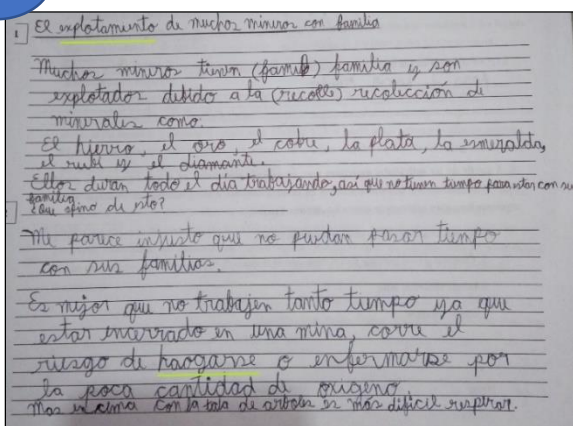 El explotamiento de muchos mineros con familia
Muchos mineros tienen (famib) familia y son
explotados debido a la (recolle) recolección de
minerales como:
El hierro, el oro, el cobre, la plata, la esmeralda,
el rubí y el diamante.
Ellos duran todo el día trabajando, así que no tienen tiempo para estar con su
familia.
¿Que opino de esto?
Me parece injusto que no puedan pasar tiempo
con sus familias.
Es mejor que no trabajen tanto tiempo ya que
estar encerrado en una mina, corre el
riesgo de haogarse o enfermarse por
la poca cantidad de oxigeno.
Mas encima con la tala de arboles es más dificil respirar.